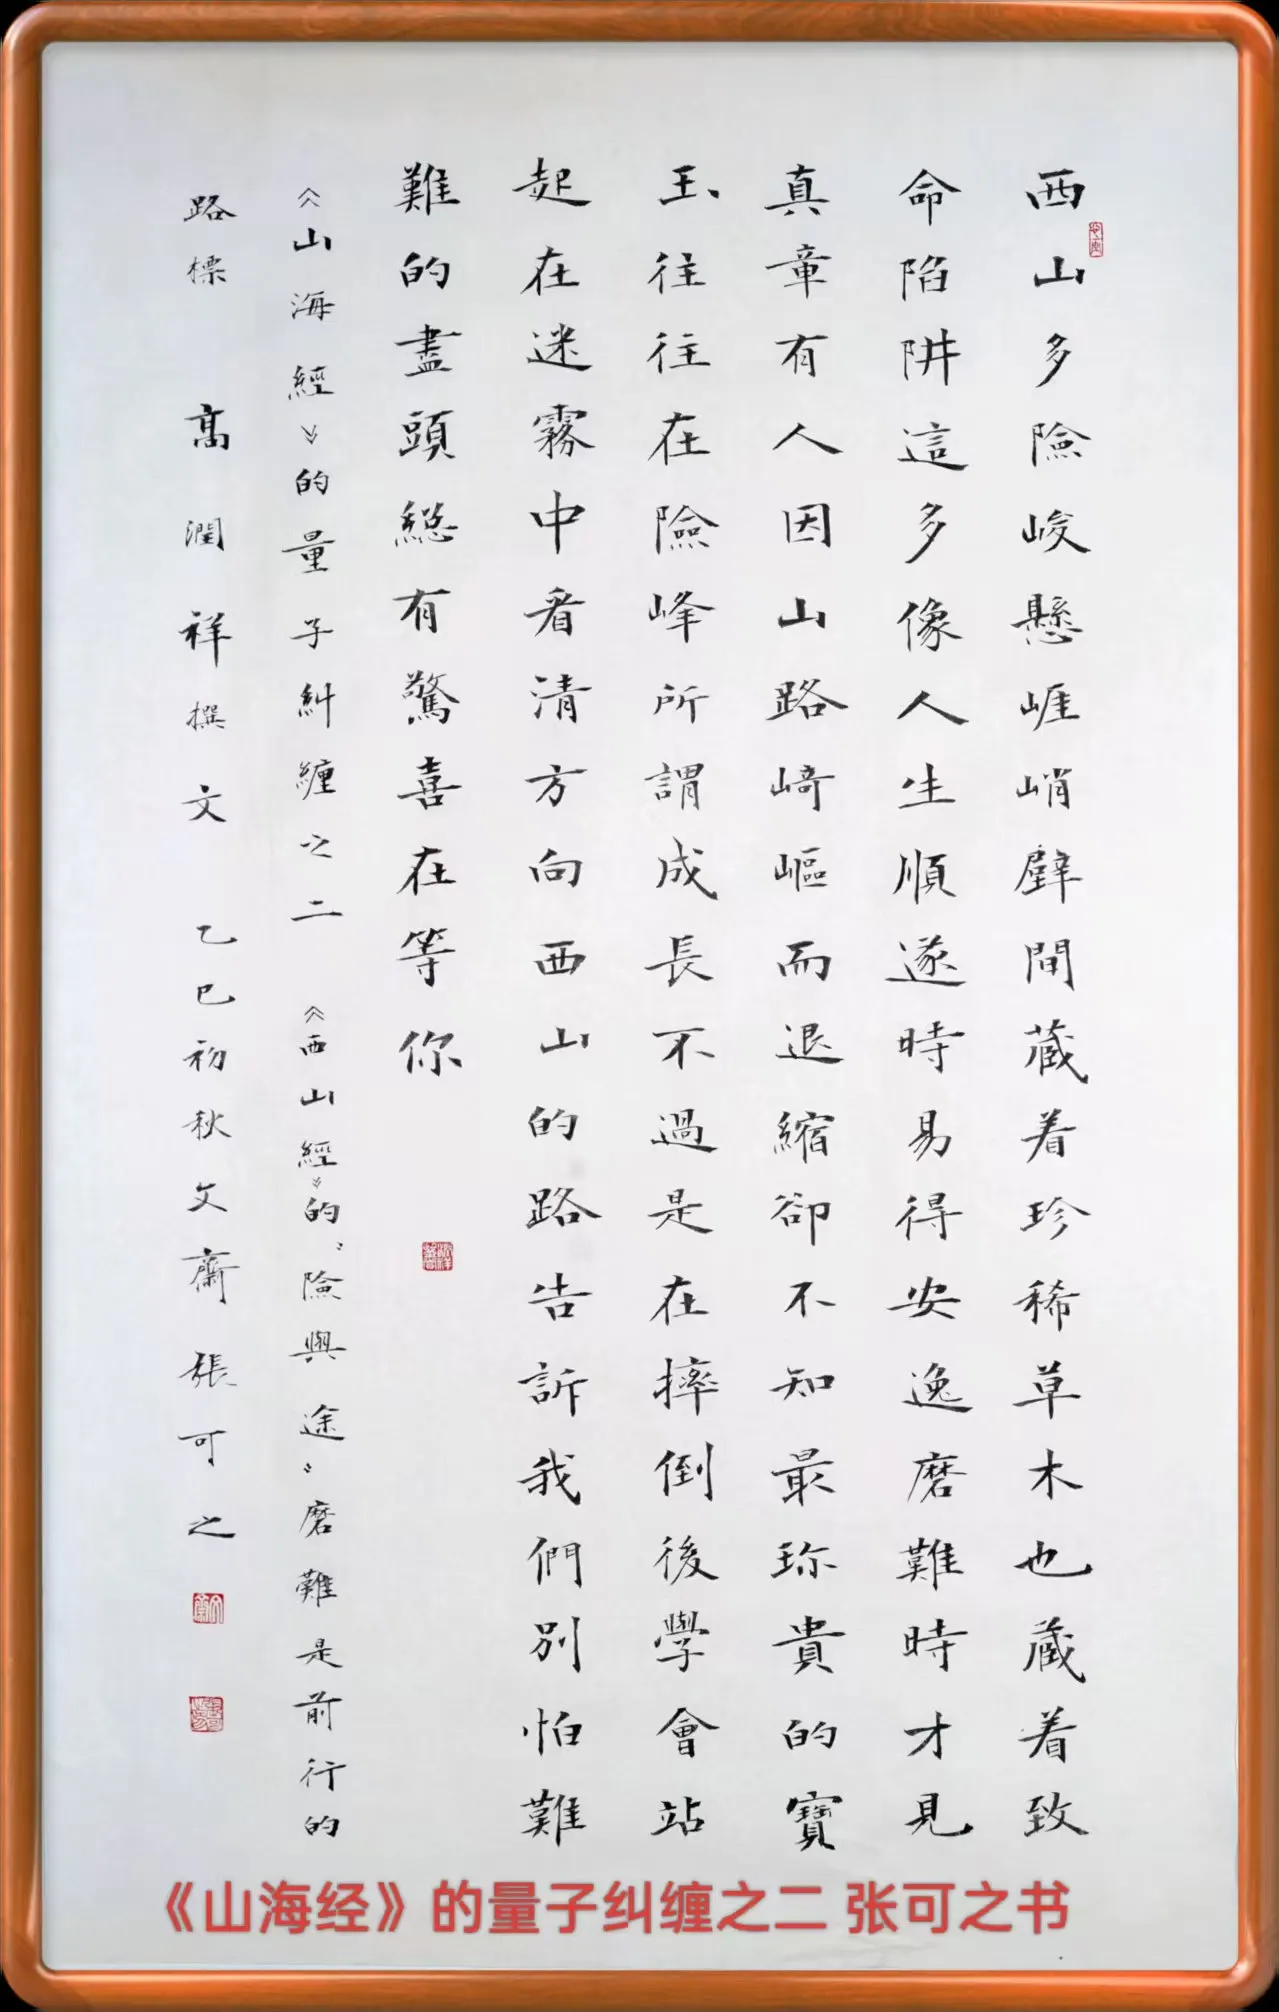 西山多險峻懸崕峭壁間蔵着珍稀草木也蔵着致
命陷阱這多像人生順遂時易得安逸磨難時才見
真章有人因山路崎嶇而退縮卻不知最珎貴的寶
玉往往在險峰所謂成長不過是在摔倒後學會站
起在迷霧中看清方向西山的路告訴我們別怕難
難的盡頭總有驚喜在等你
《山海經》的量子糾纏之二 《西山經》的“險與途”磨難是前行的
路標 髙潤祥撰文 乙巳初秋文齋張可之
《山海经》的量子纠缠之二 张可之书